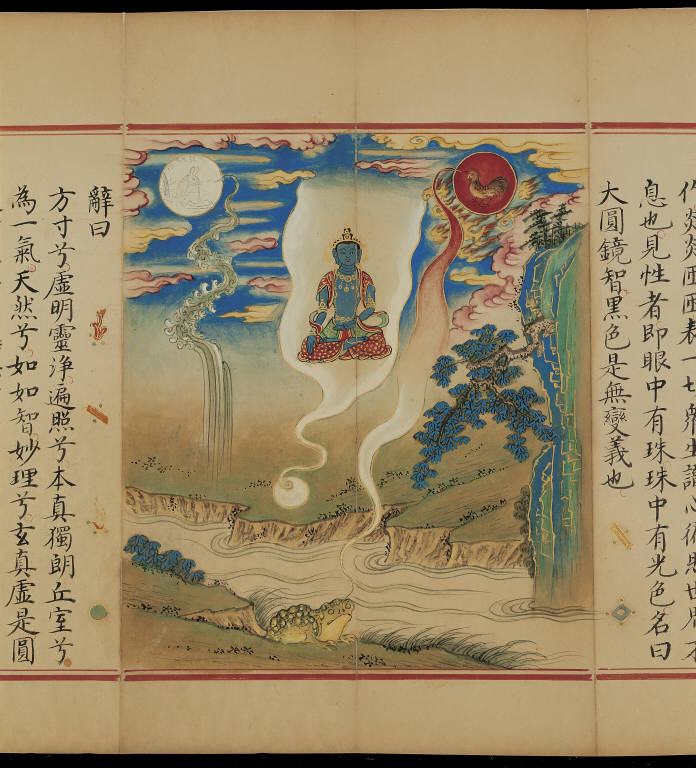 表一切衆生諸心
息也見性者即眼中有珠珠中有光色名曰
大圓鏡智黑色是無變義也
辭曰
方寸兮虛明靈淨遍照兮本真獨朗丘室兮
為一氣天然兮如如智妙理兮玄真虛是圓